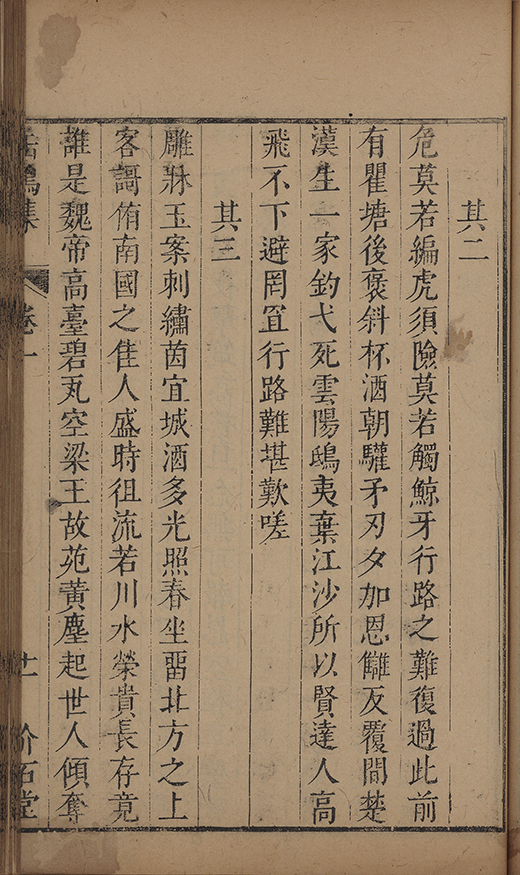 其二
危莫若編虎須險莫若觸鯨牙行路之難復過此前
有瞿塘後褒斜杯酒朝驩矛刃夕加恩讎反覆間楚
漢生一家釣弋死雲陽鴟夷棄江沙所以賢達人高
飛不下避罔罝行路難堪歎嗟
其三
雕牀玉案刺繡茵宜城酒多光照春坐畱北方之上
客謌侑南國之佳人盛時徂流若川水榮貴長存竟
誰是魏帝高臺碧瓦空梁王故苑黃塵起世人傾奪
集 卷一 介石堂